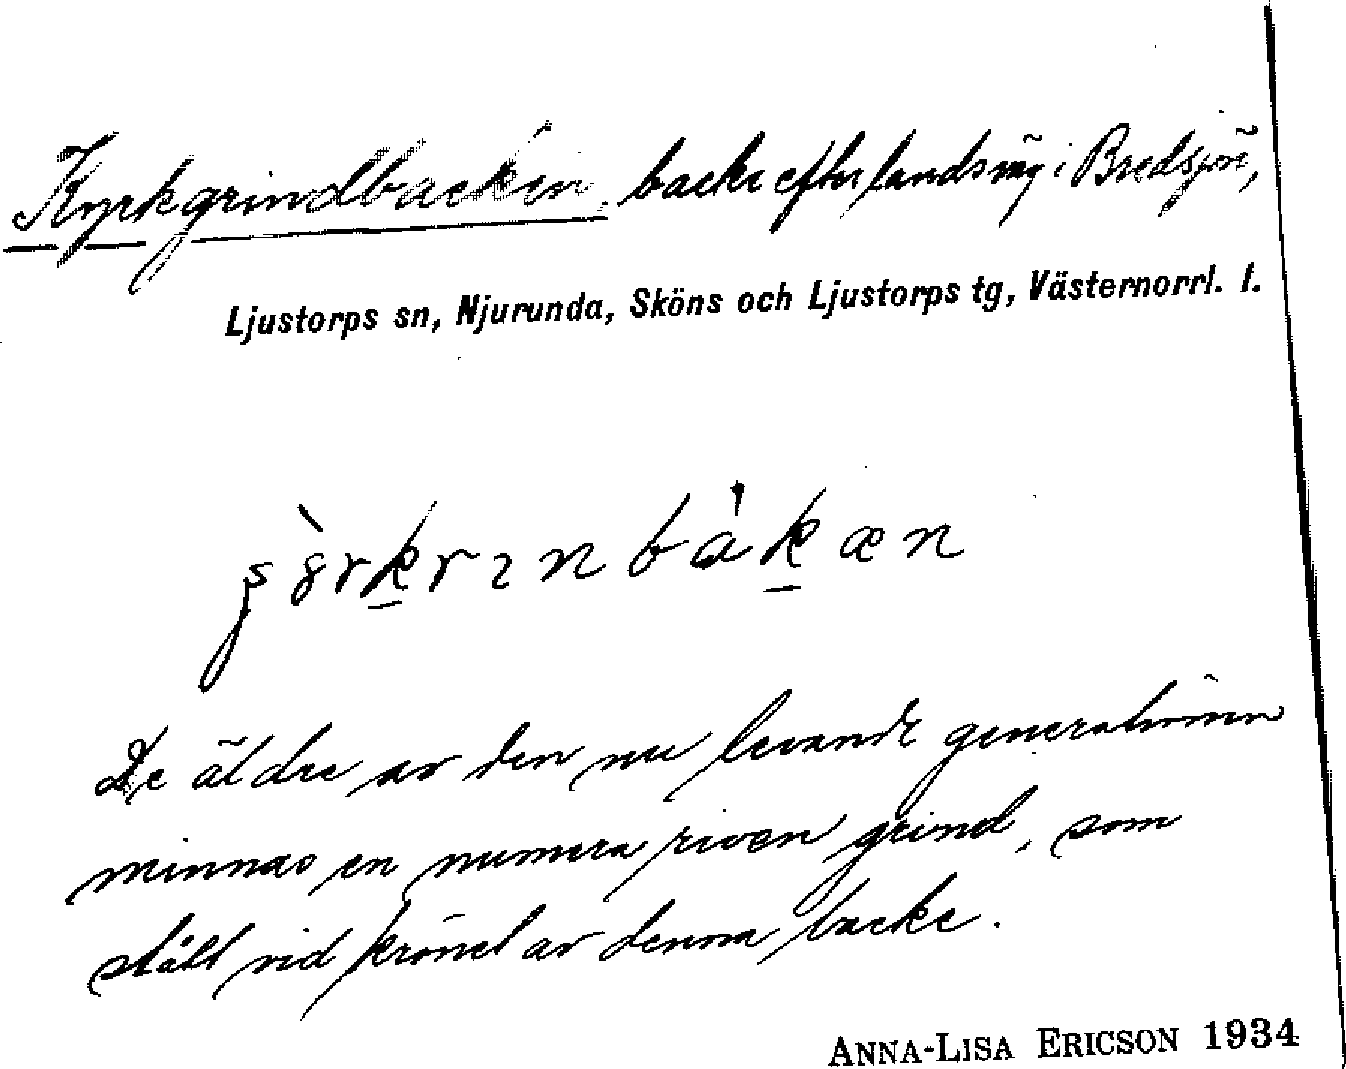 Kyrkgrindbacken, backe efter landsväg i Bredsjön,
Ljustorps sn, Njurunda, Sköns och Ljustorps tg, Västernorrl. l.
De äldre av den nu levande generationen
minnas en numera riven grind, som
stått vid krönet av denna backe.
ANNA-LISA ERICSON 1934